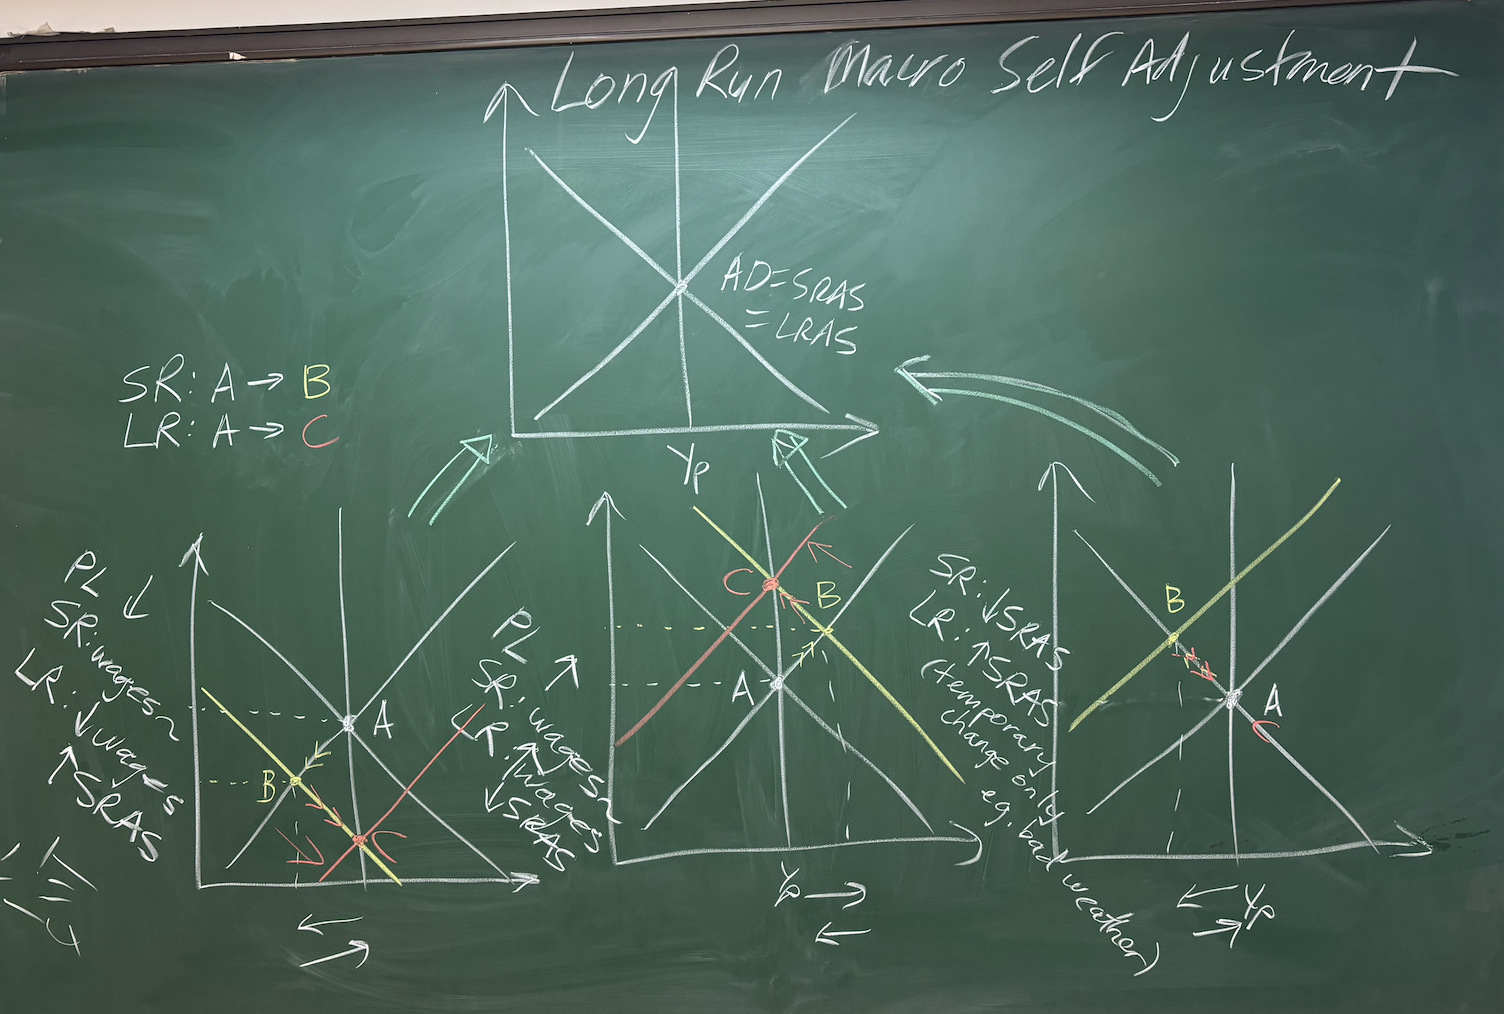 Long Run Macro Self Adjustment
AD=SRAS
=LRAS
Yp
SR: A→B
LR: A→C
PL ↓
SR: wages~
LR: ↓wages
↑SRAS
A
B
C
PL ↑
SR: wages~
LR: ↑wages
↓SRAS
C
B
A
Yp
SR: ↓SRAS
LR: ↑SRAS
(temporary
change only
eg. bad weather)
B
A
C
Yp